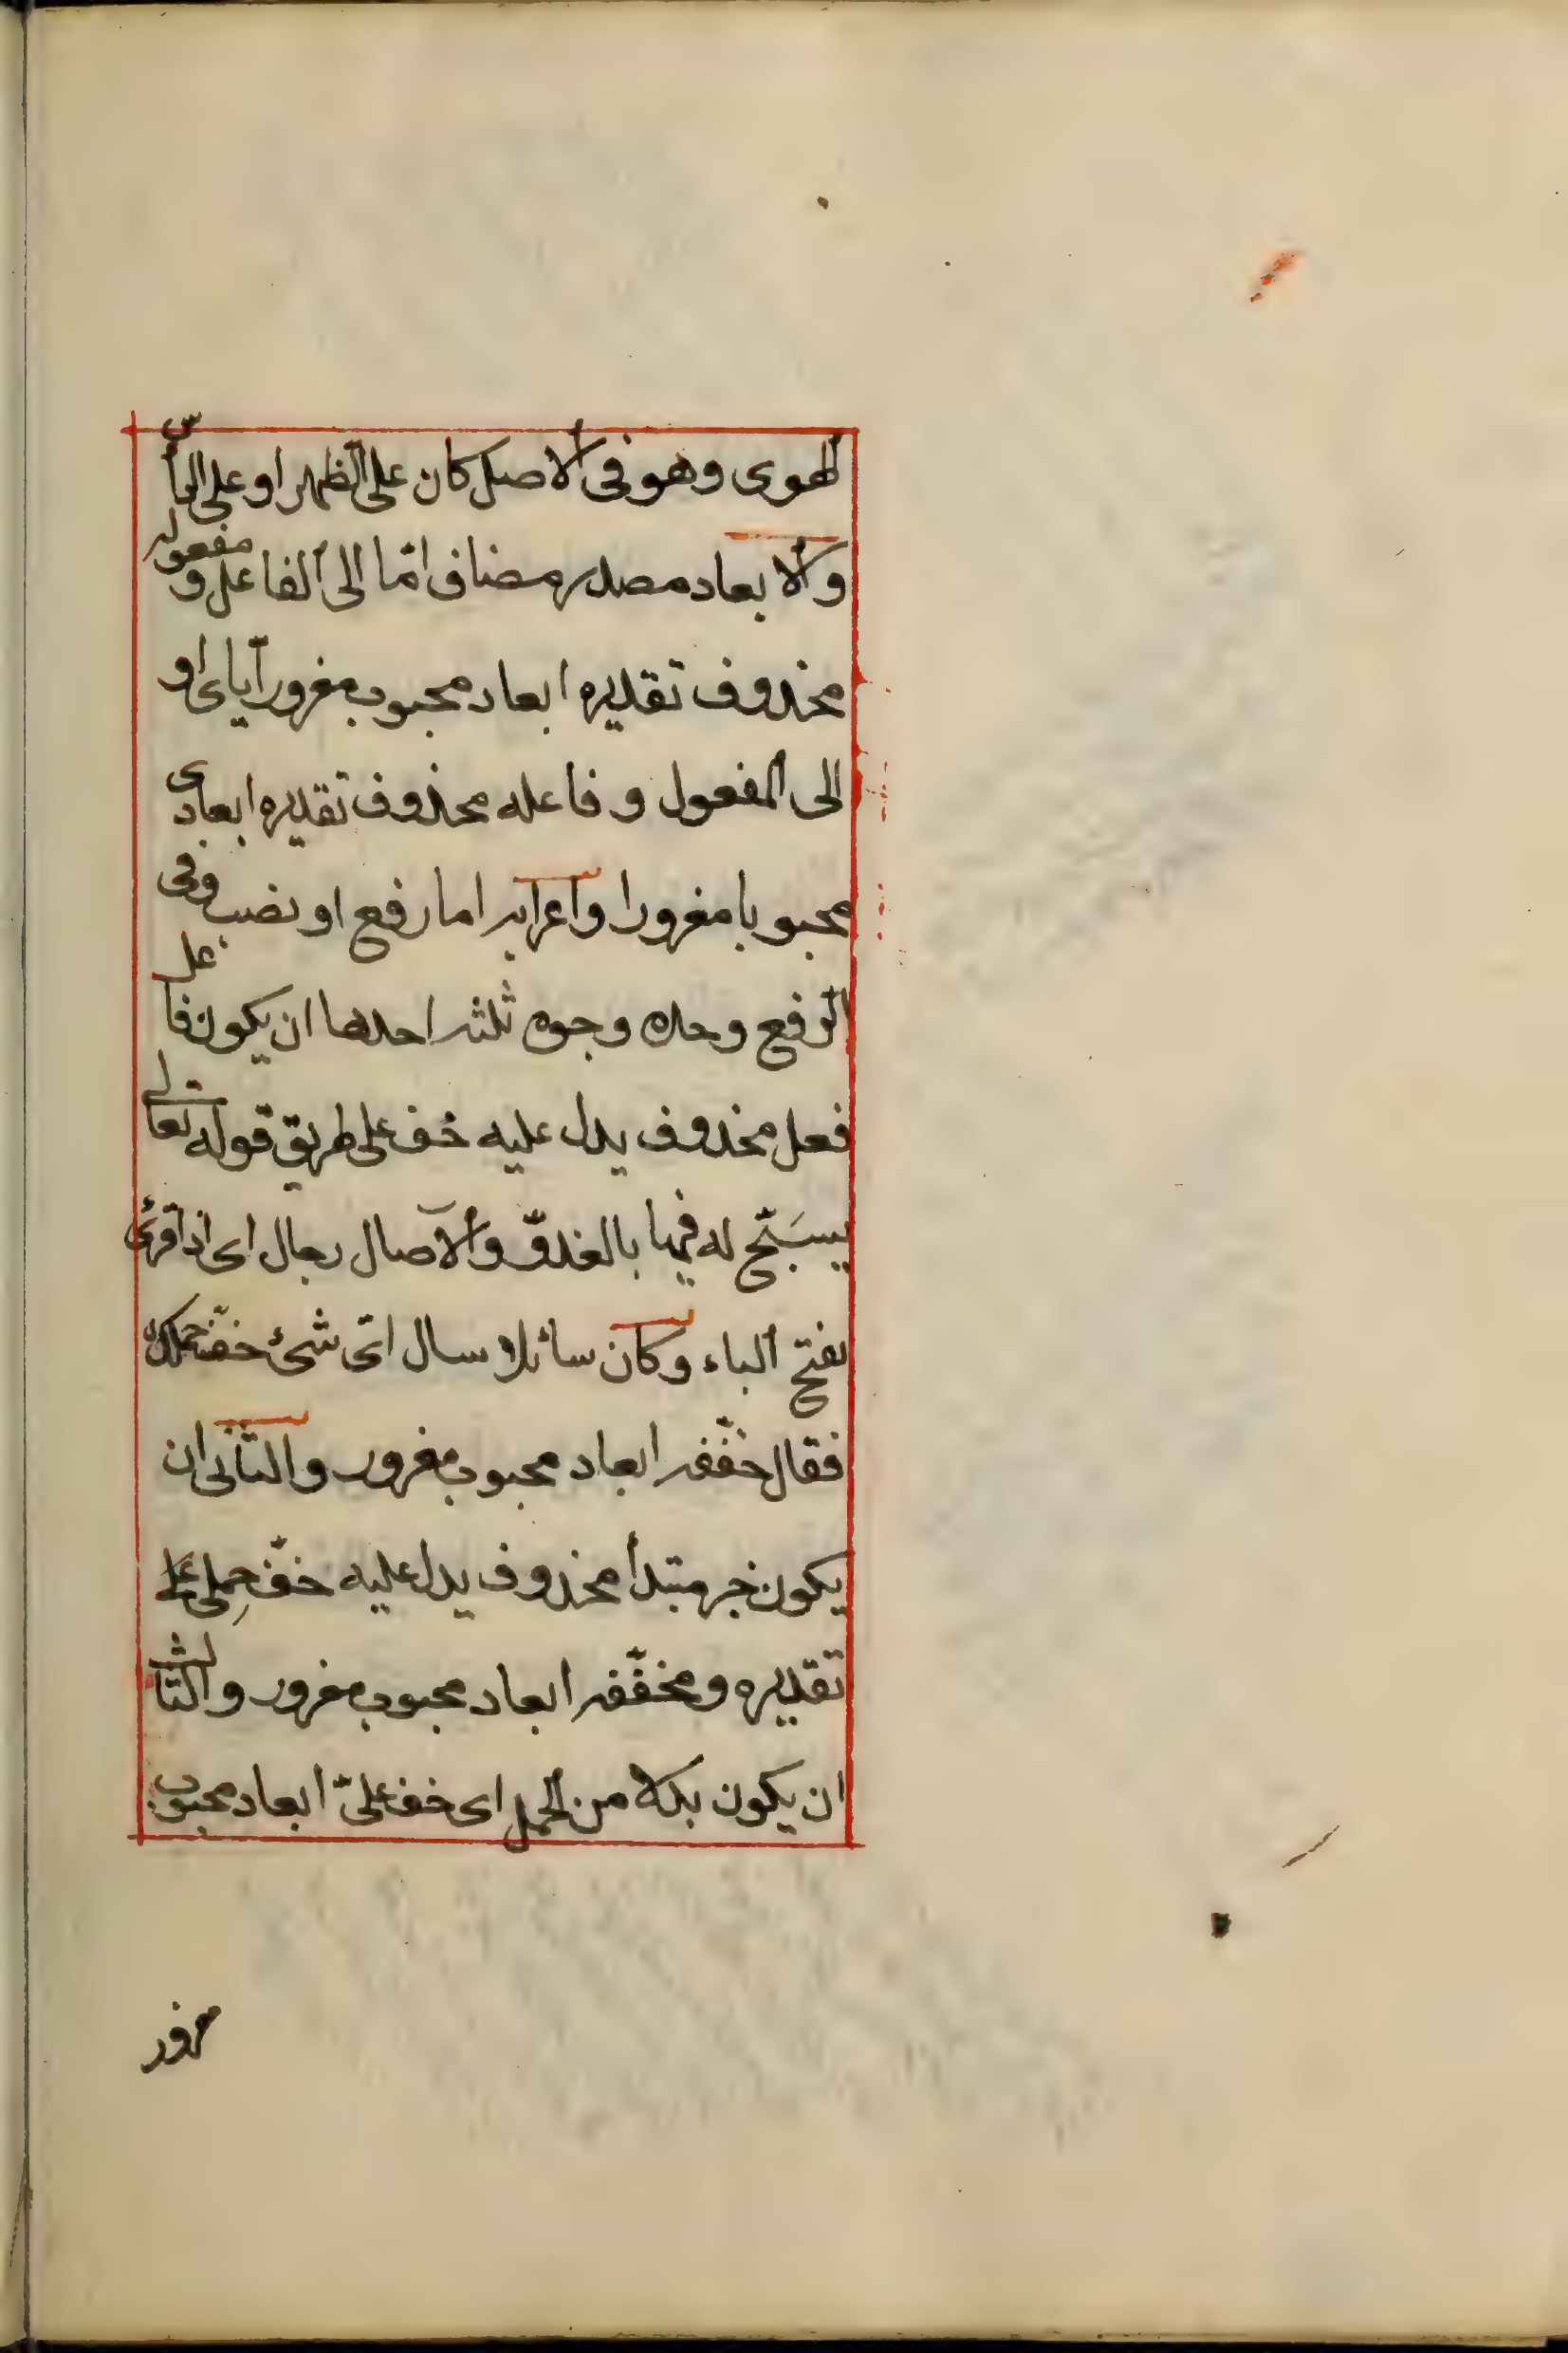 الهوى وهو فى الاصل كان على الظهر او على الراس
والابعاد مصدر مضاف امّا الى الفاعل ومفعوله
محذوف تقديره ابعاد محبوب مغرور ايّاى او
الى المفعول وفاعله محذوف تقديره ابعادى
محبوبا مغرورا واعرابه اما رفع او نصب وفى
الرفع وحده وجوه ثلثه احدها ان يكون فاعل
فعل محذوف يدل عليه خف على طريق قوله تعالى
يسبّح له فيها بالغدوّ والآصال رجال اى اذا قرئ
بفتح الباء وكان سائلا سال اىّ شئ خفّف حملك
فقال خفّفه ابعاد محبوب مغرور والثانى ان
يكون خبر مبتدأ محذوف يدل عليه خفّ حِملى على
تقديره ومخفّفه ابعاد محبوب مغرور والثالث
ان يكون بدلا من الحمل اى خف علىّ ابعاد محبوب
مغرور